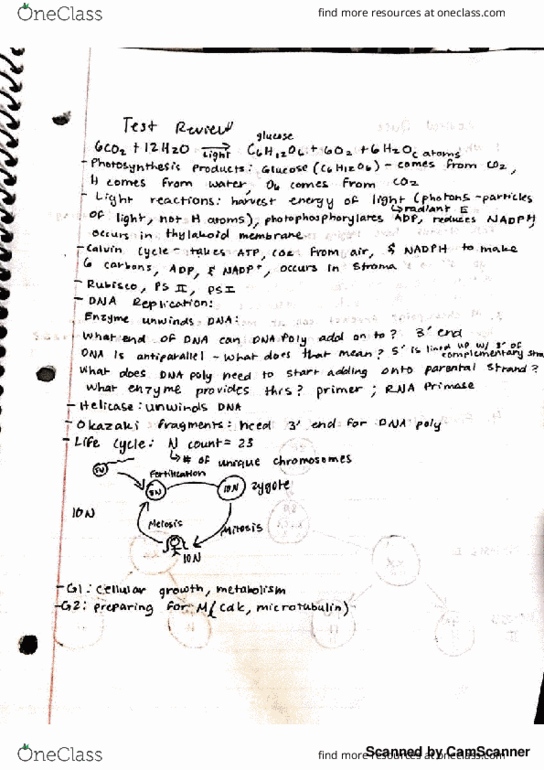 OneClass
find more resources at oneclass.com
Test Review
glucose
6CO2 + 12H2O → C6H12O6 + 6O2 + 6H2O
Light
C atoms
- Photosynthesis products: Glucose (C6H12O6) - comes from CO2,
H comes from water, O6 comes from CO2
- Light reactions: harvest energy of light (photons - particles
↳ radiant E
of light, not H atoms), photophosphorylates ADP, reduces NADPH,
occurs in thylakoid membrane
- Calvin Cycle - takes ATP, CO2 from air, & NADPH to make
6 carbons, ADP, & NADP+, occurs in stroma
- Rubisco, PS II, PS I
- DNA Replication:
Enzyme unwinds DNA:
What end of DNA can DNA Poly add on to? 3' end
DNA is antiparallel - what does that mean? 5' is lined up w/ 3' of
complementary
What does DNA poly need to start adding onto parental strand?
What enzyme provides this? primer; RNA Primase
- Helicase: unwinds DNA
- Okazaki fragments: need 3' end for DNA poly
- Life Cycle: N count = 23
↳ # of unique chromosomes
5N
Fertilization
5N
10N
zygote
10N
Meiosis
Mitosis
10N
- G1: cellular growth, metabolism
- G2: preparing for M (cdk, microtubulin)
Scanned by CamScanner
OneClass
find more resources at oneclass.com